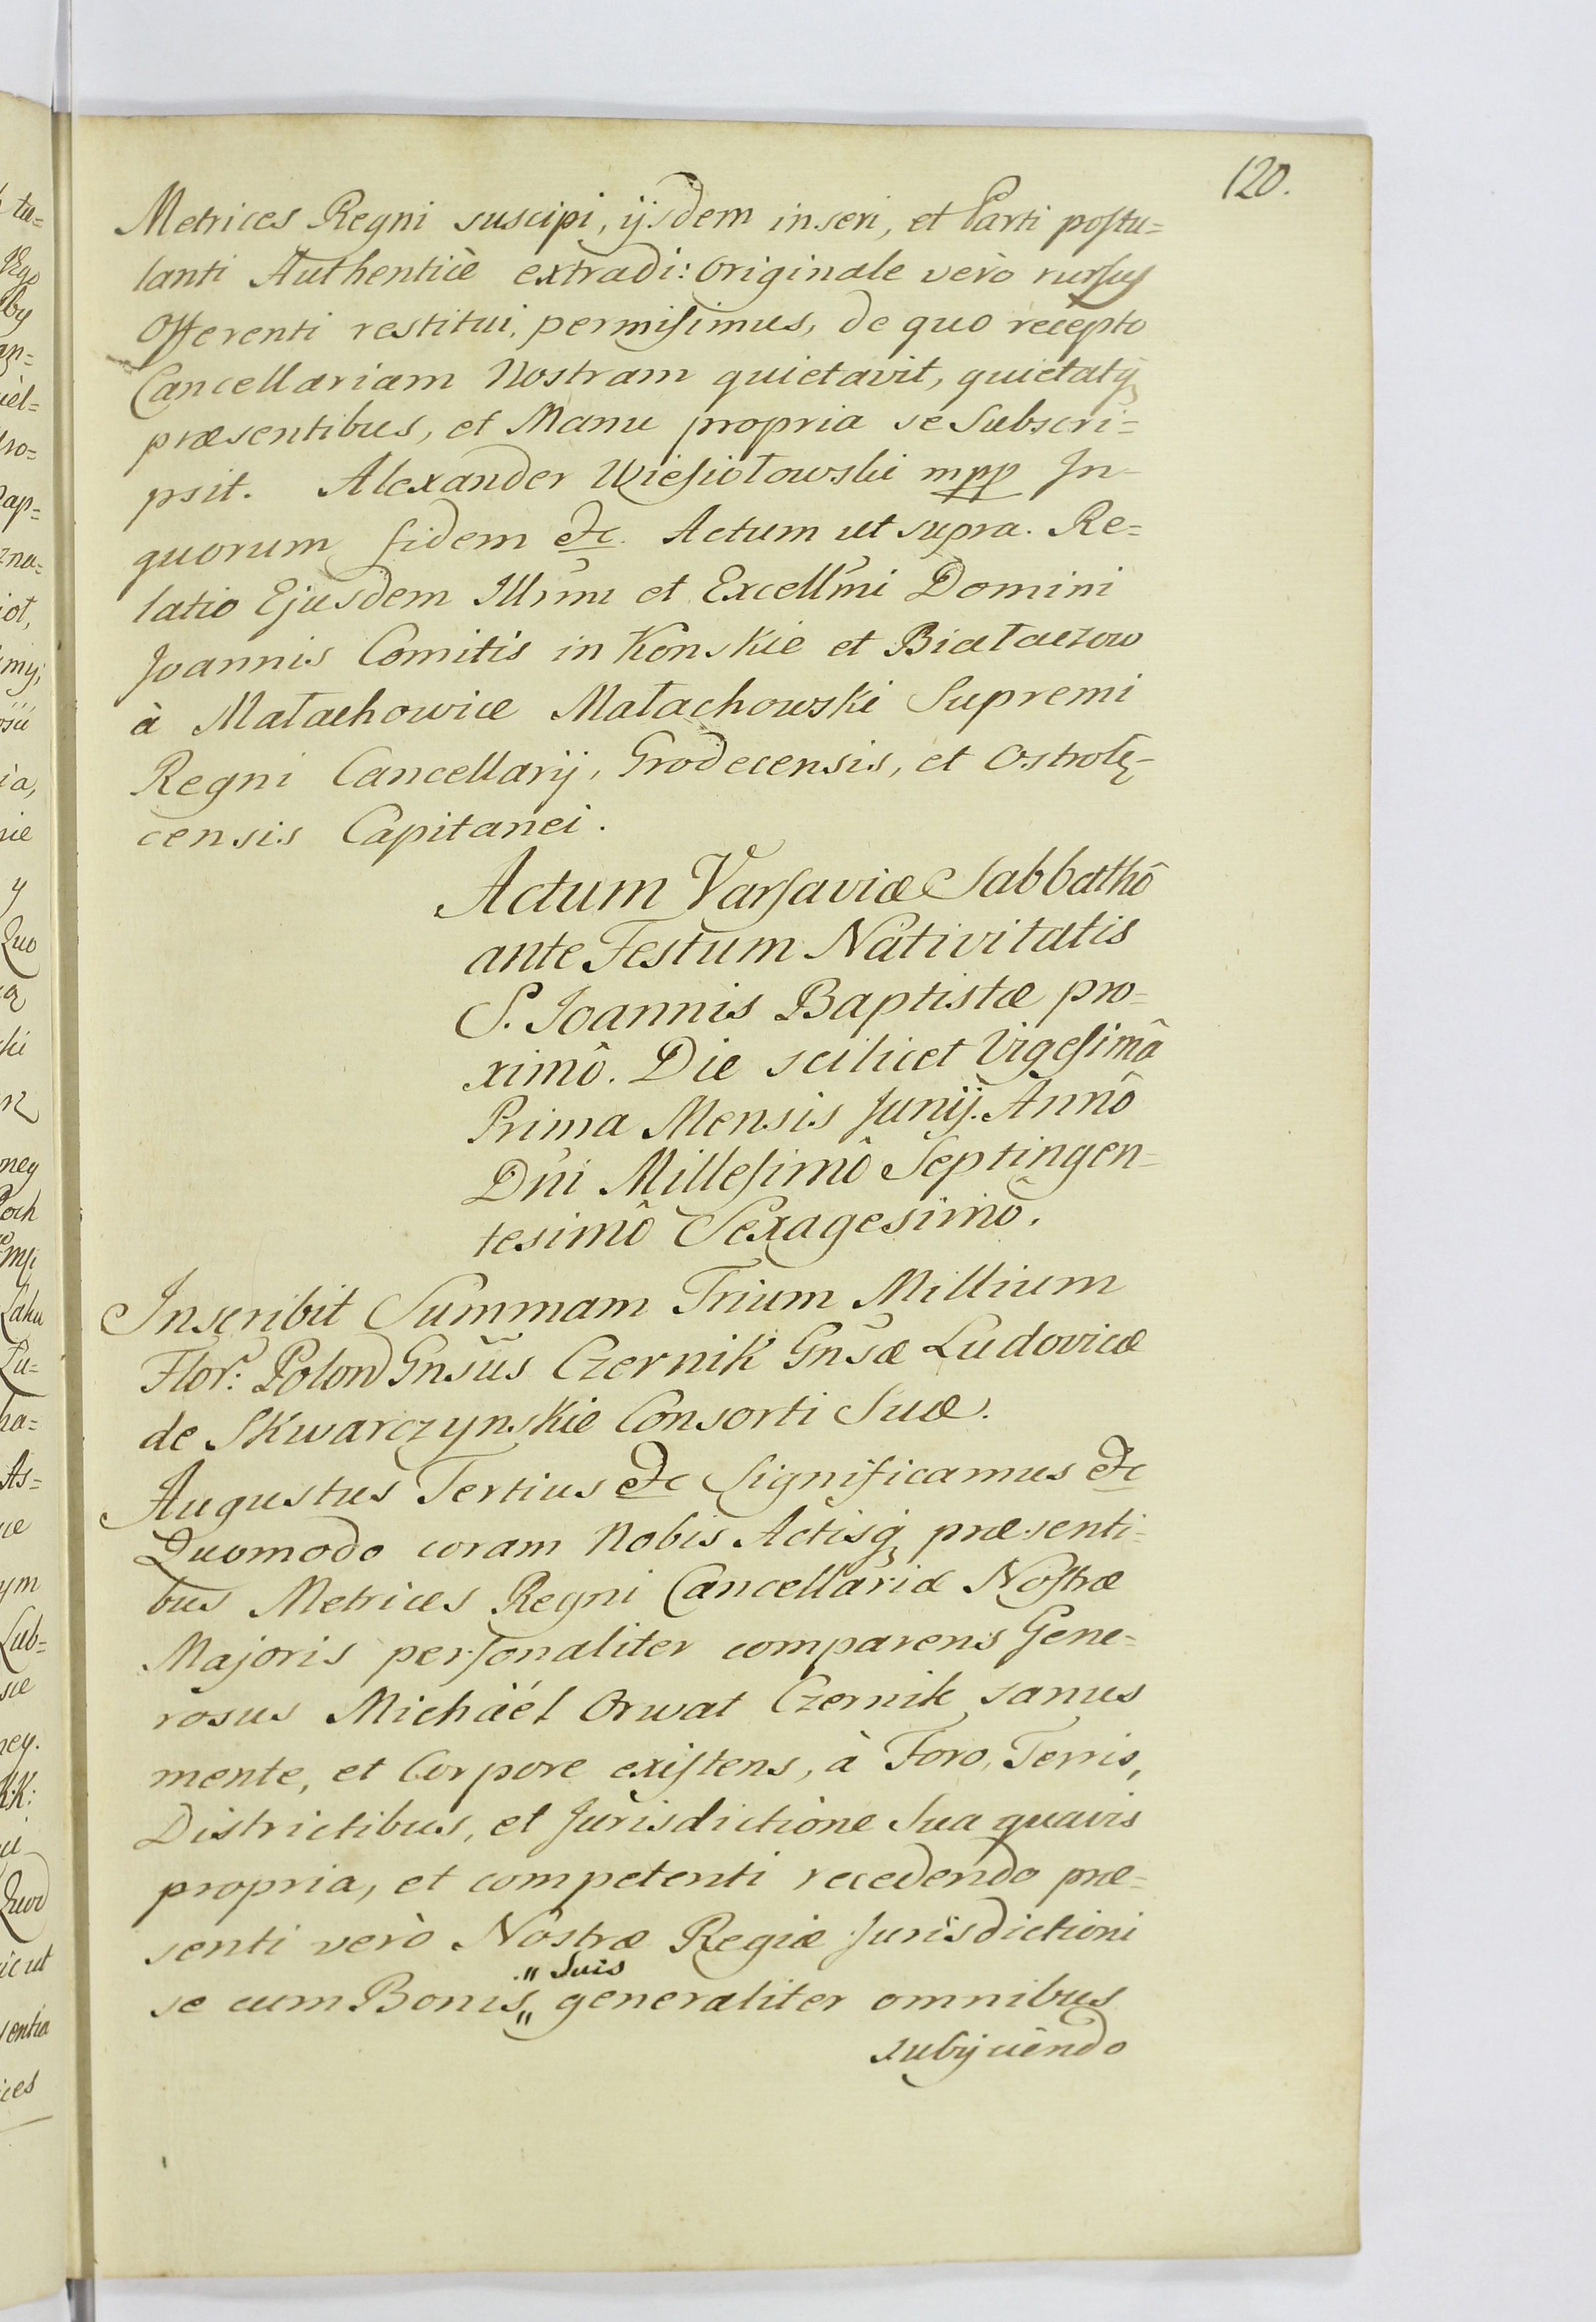 120.
Metrices Regni suscipi, ijsdem inseri, et Parti postu=
lanti Authenticè extradi: Originale verò rursus
Offerenti restitui, permisimus, de quo recepto
Cancellariam Nostram quietavit, quietatq
præsentibus, et Manu propria se Subscri=
psit. Alexander Wiesiołowski mpp In
quorum fidem etc. Actum ut supra. Re=
latio Ejusdem Illmi et Excellmi Domini
Joannis Comitis in Konskie et Białaczow
à Małachowice Małachowski Supremi
Regni Cancellarij, Grodecensis, et Ostrolę-
censis Capitanei.
Actum Varsaviæ Sabbathô
ante Festum Nativitatis
S. Joannis Baptistæ pro=
ximô. Die scilicet Vigesimâ
Prima Mensis Junij. Annô
Dni Millesimô Septingen=
tesimô Sexagesimô.
Inscribit Summam Trium Millium
Flor: Polon Gnsus Czernik Gnsæ Ludovicæ
de Skwarczynskie Consorti Suæ.
Augustus Tertius etc Significamus etc
Quomodo coram Nobis Actisq præsenti=
bus Metrices Regni Cancellariæ Nostræ
Majoris personaliter comparens Gene=
rosus Michäél Orwat Czernik sanus
mente, et Corpore existens, à Foro, Terris,
Districtibus, et Jurisdictione Sua quavis
propria, et competenti recedendo præ=
senti verò Nostræ Regiæ Jurisdictioni
se cum Bonis " Suis " generaliter omnibus
subijciendo